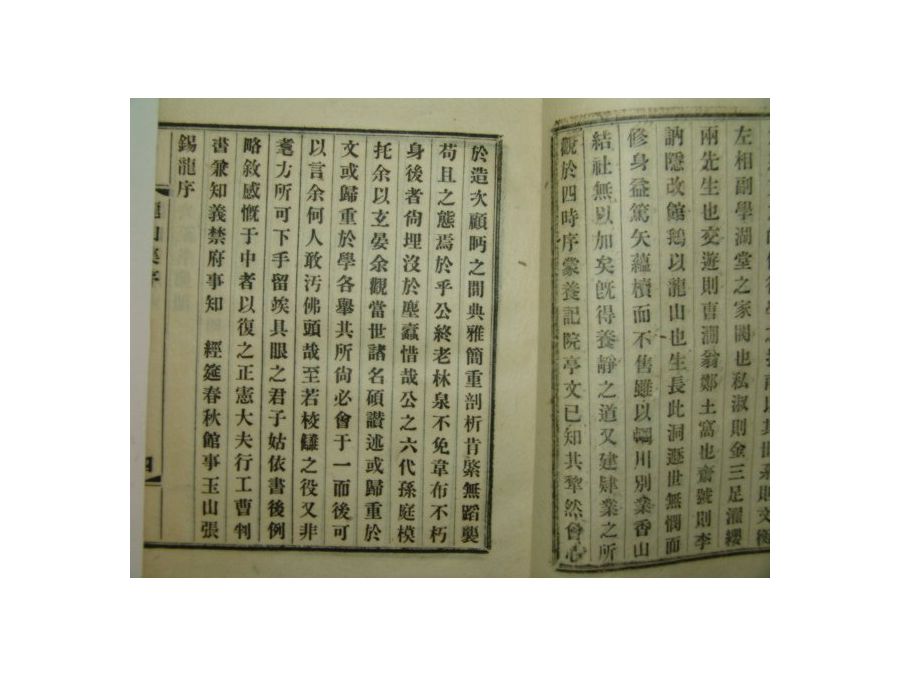 左相副學湖堂之家閥也私淑則金三足濯纓
兩先生也交遊則曺澗翁鄭土窩也齋號則李
訥隱改館鵝以龍山也生長此洞遯世無憫而
修身益篤矢蘊櫝而不售雖以輞川別業香山
結社無以加矣旣得養靜之道又建肄業之所
觀於四時序蒙養記院亭文已知其犂然會心
於造次顧眄之間典雅簡重剖析肯綮無蹈襲
苟且之態焉於乎公終老林泉不免韋布不朽
身後者尙埋沒於塵蠹惜哉公之六代孫庭模
托余以玄晏余觀當世諸名碩讚述或歸重於
文或歸重於學各擧其所尙必會于一而後可
以言余何人敢汚佛頭哉至若校讎之役又非
耄方所可下手留竢具眼之君子姑依書後例
略敘感慨于中者以復之正憲大夫行工曹判
書兼知義禁府事知 經筵春秋館事玉山張
錫龍序